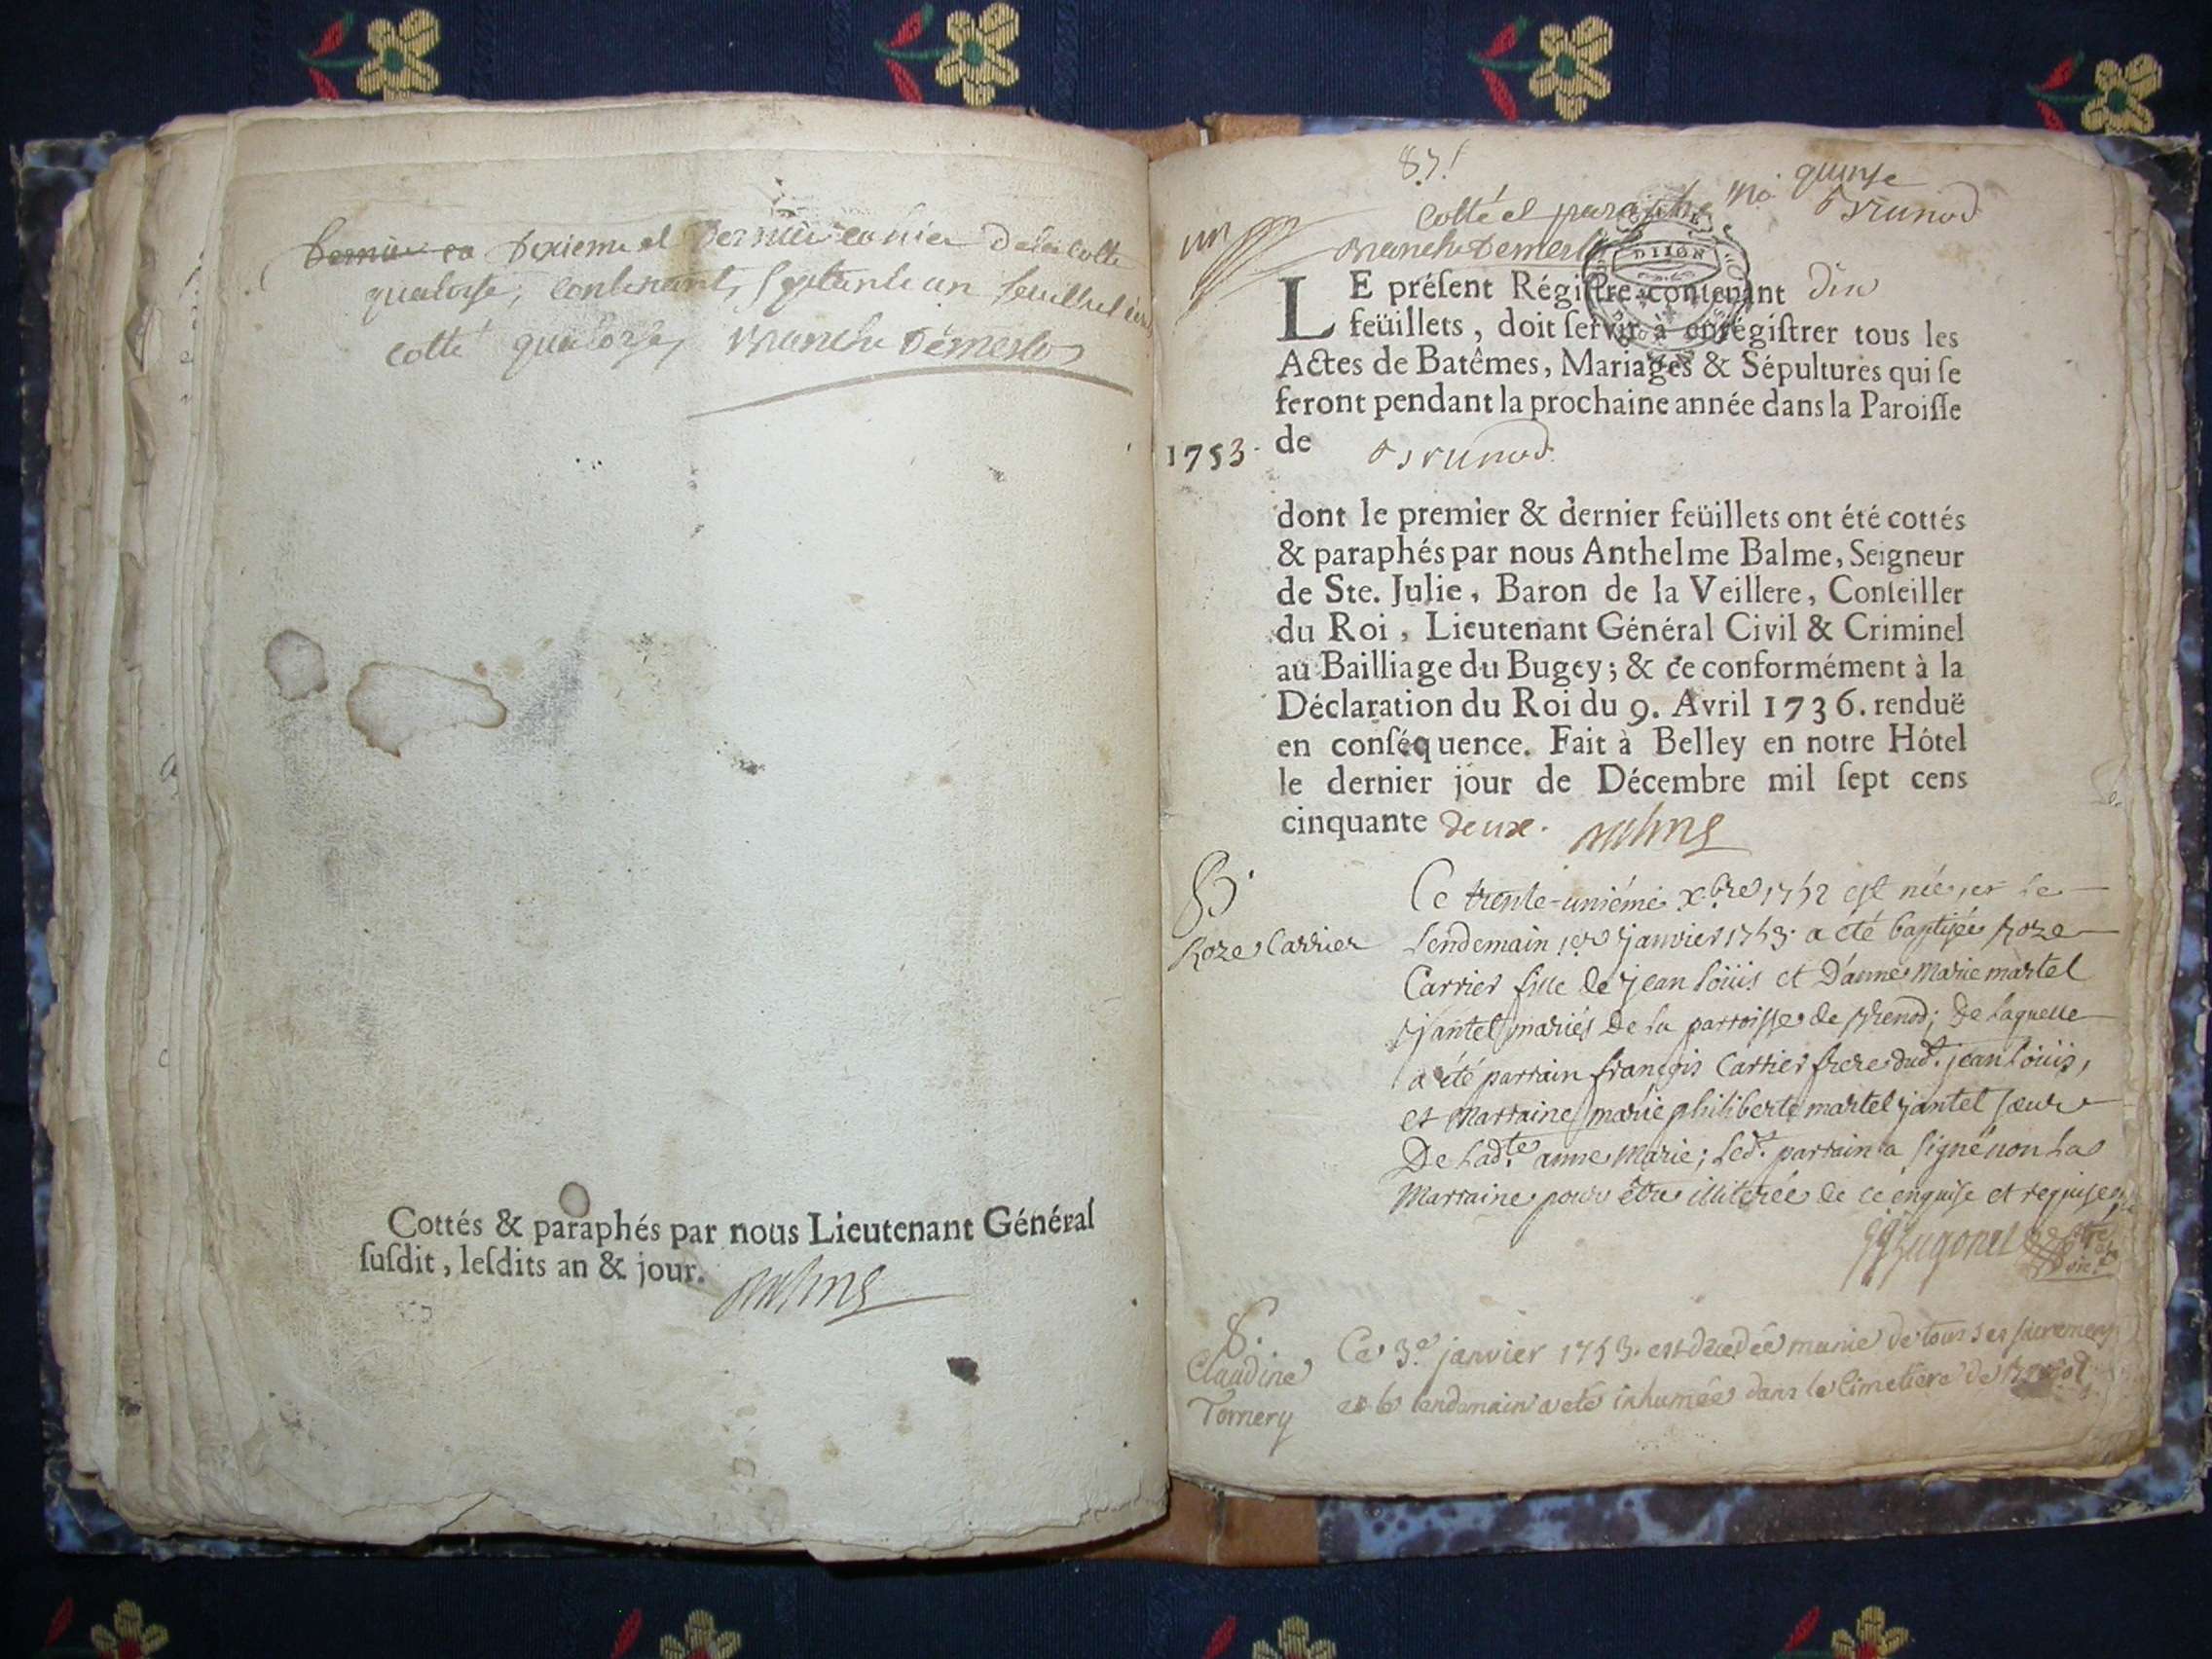 Dernier ca Dixieme et Dernier cahier de la Cotte
quatorse, contenant, Septante un feuillet
cotté quatorse,
Cottés & paraphés par nous Lieutenant Général
ſuſdit, leſdits an & jour.
Balme
quinse
cotté et paraphe No Brunod
un
DIJON
LE préſent Régiſtre contenant dix
feüillets, doit ſervir à enrégiſtrer tous les
Actes de Batêmes, Mariages & Sépultures qui ſe
feront pendant la prochaine année dans la Paroiſſe
1753. de Brunod
dont le premier & dernier feüillets ont été cottés
& paraphés par nous Anthelme Balme, Seigneur
de Ste. Julie, Baron de la Veillere, Conſeiller
du Roi, Lieutenant Général Civil & Criminel
au Bailliage du Bugey; & ce conformément à la
Déclaration du Roi du 9. Avril 1736. renduë
en conſéquence. Fait à Belley en notre Hôtel
le dernier jour de Décembre mil ſept cens
cinquante deux. Balme
B.
Roze Carrier
Ce trente-uniéme Xbre 1752 est née, et le
lendemain 1er janvier 1753. a été baptisée Roze
Carrier fille de jean loüis et D'anne Marie martel
jantel mariés de la parroisse de Brenod; de laquelle
a été parrain françois Carrier frere dud.t jean loüis,
et Marraine marie philiberte martel jantel sœur
De lad.te anne Marie; led.t parrain a signé non la
Marraine pour être illiterée de ce enquise et requise
Hugonet
S.
Claudine
Tornery
Ce 3.e janvier 1753. est décedée munie de tous ses sacremens
et le lendemain a eté inhumée dans le Cimetiere de Brenod